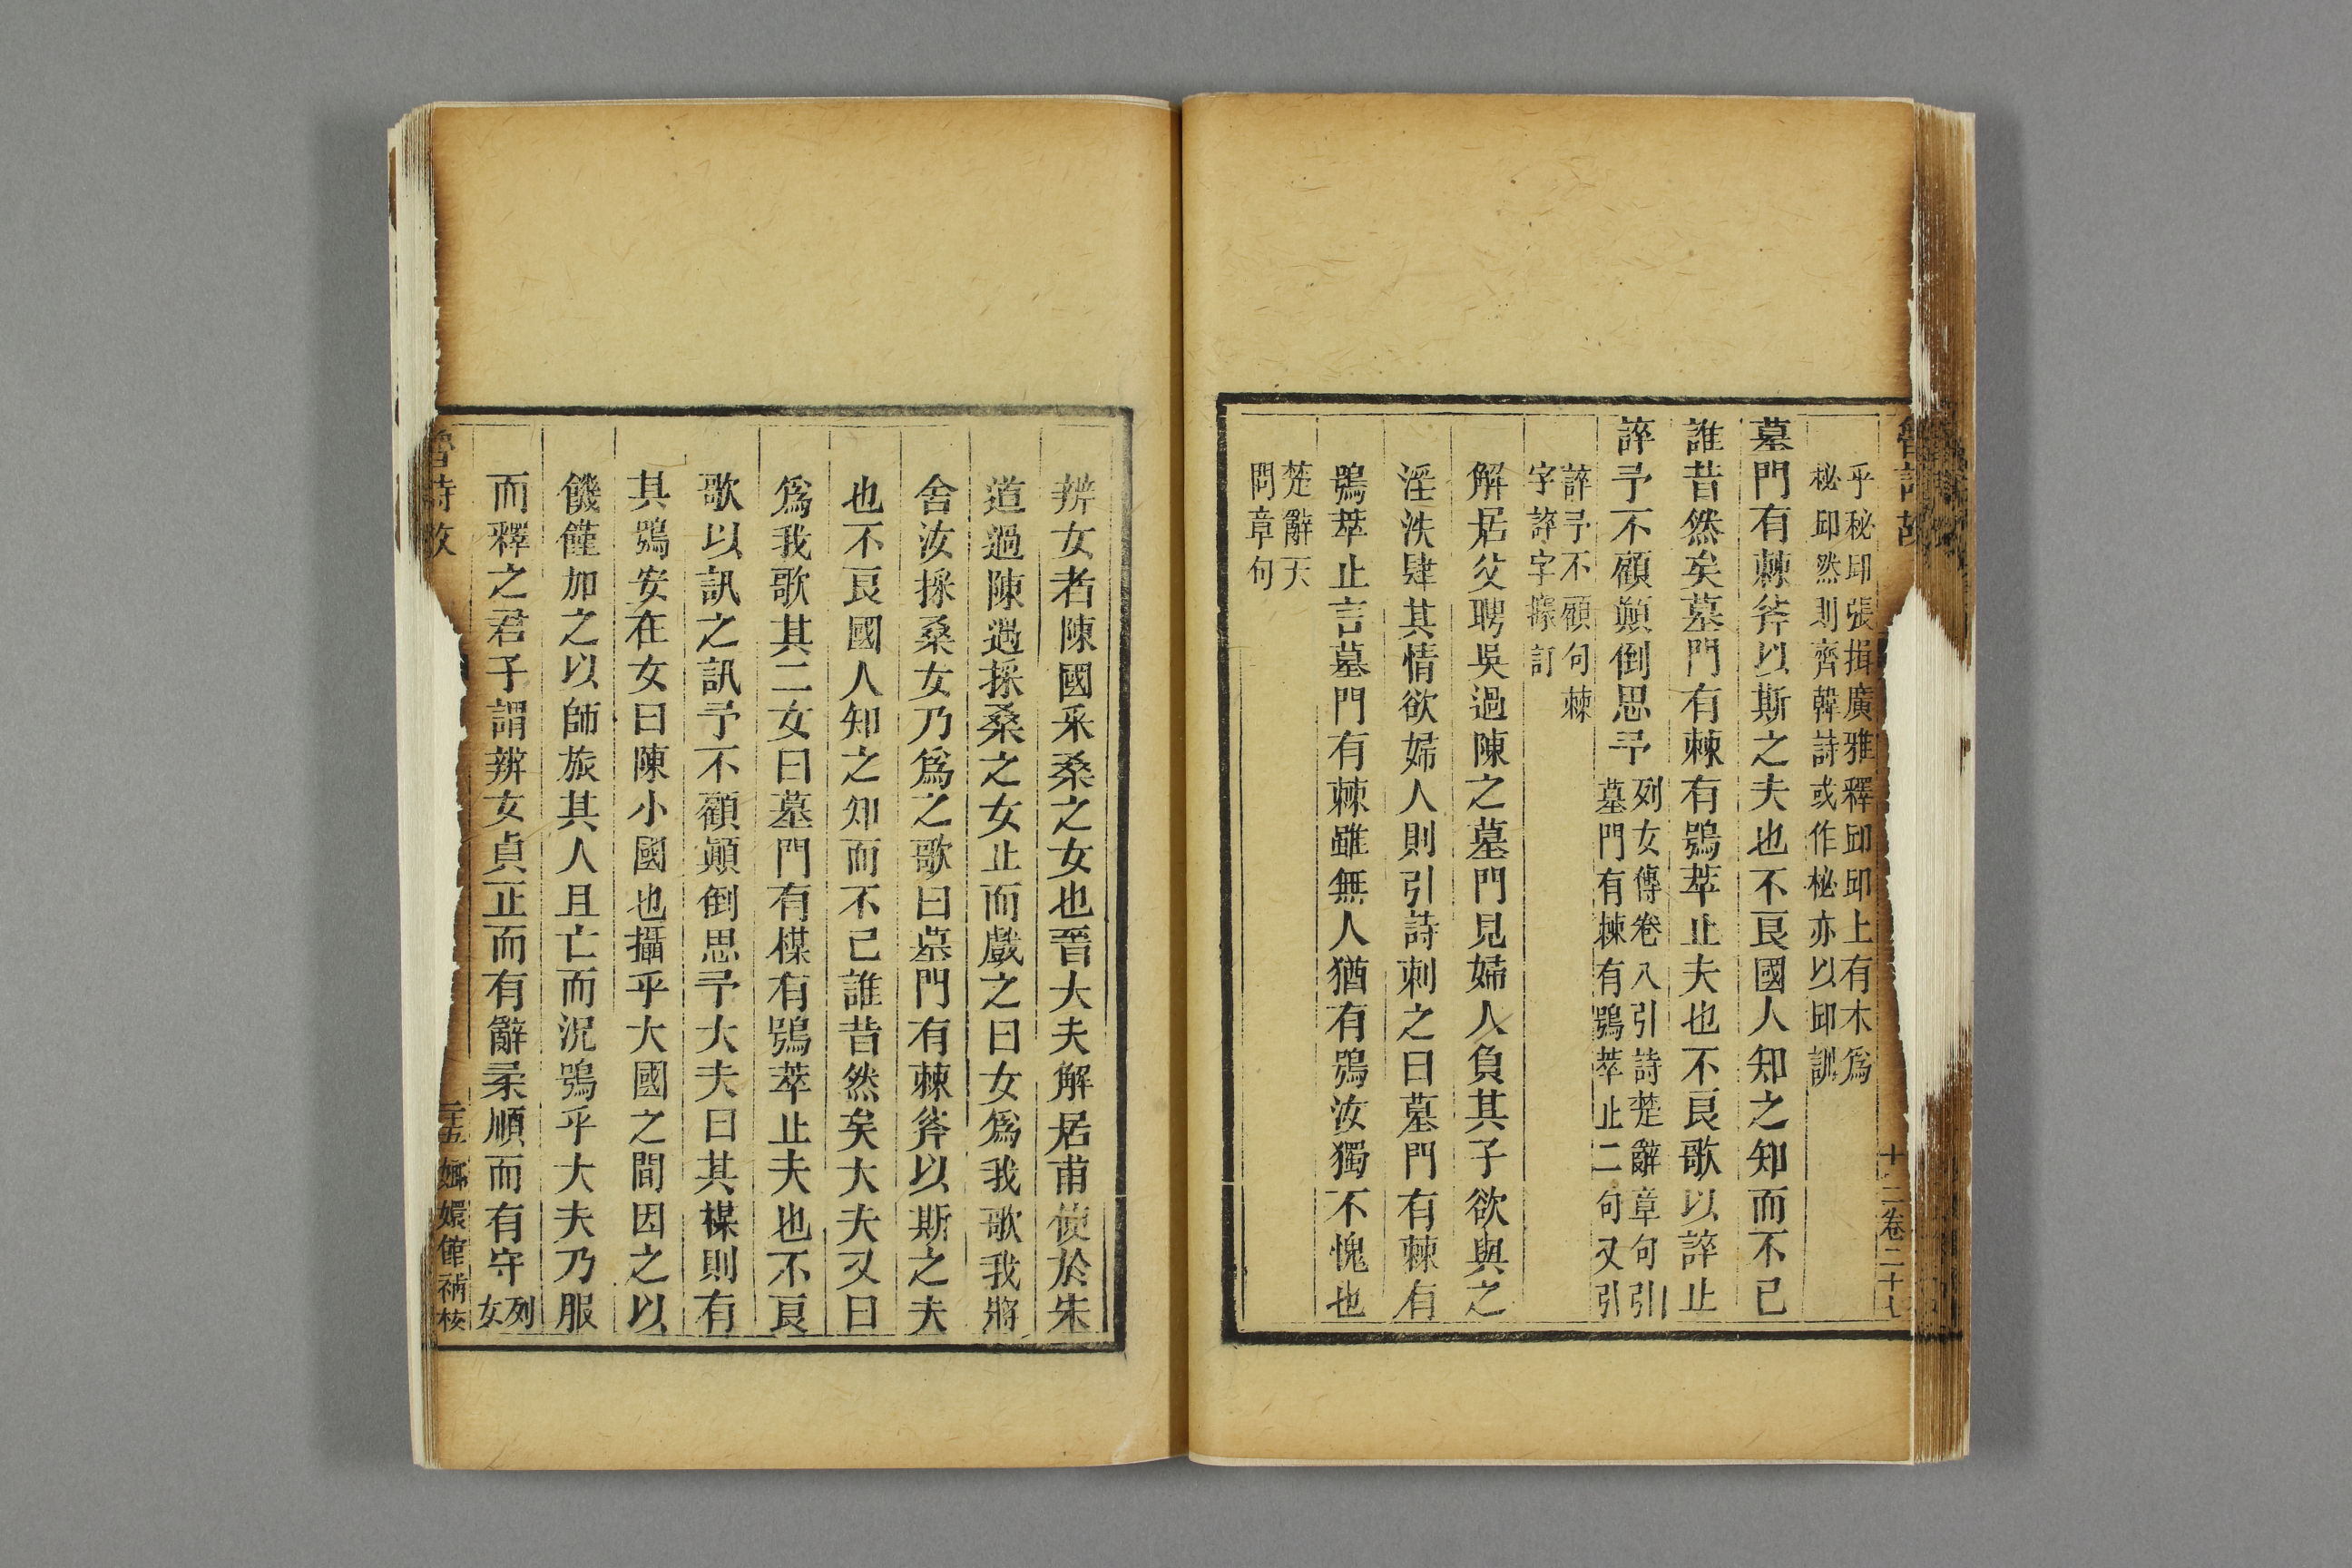 乎秘卭張揖廣雅釋卭卭上有木爲
秘卭然則齊韓詩或作柲亦以卭訓
墓門有棘斧以斯之夫也不良國人知之知而不已
誰昔然矣墓門有棘有鴞萃止夫也不良歌以誶止
誶予不顧顚倒思予
列女傳卷八引詩楚辭章句引
墓門有棘有鴞萃止二句又引
誶予不顧句棘
字誶字據訂
解居父聘吳過陳之墓門見婦人負其子欲與之
淫泆肆其情欲婦人則引詩刺之曰墓門有棘有
鴞萃止言墓門有棘雖無人猶有鴞汝獨不愧也
楚辭天
問章句
十二卷二十七
辨女者陳國采桑之女也晉大夫解居甫使於宋
道過陳遇採桑之女止而戲之曰女爲我歌我將
舍汝採桑女乃爲之歌曰墓門有棘斧以斯之夫
也不良國人知之知而不已誰昔然矣大夫又曰
爲我歌其二女曰墓門有楳有鴞萃止夫也不良
歌以訊之訊予不顧顚倒思予大夫曰其楳則有
其鴞安在女曰陳小國也攝乎大國之間因之以
饑饉加之以師旅其人且亡而況鴞乎大夫乃服
而釋之君子謂辨女貞正而有辭柔順而有守
列
女
魯詩故
二十五
嫏嬛館補校